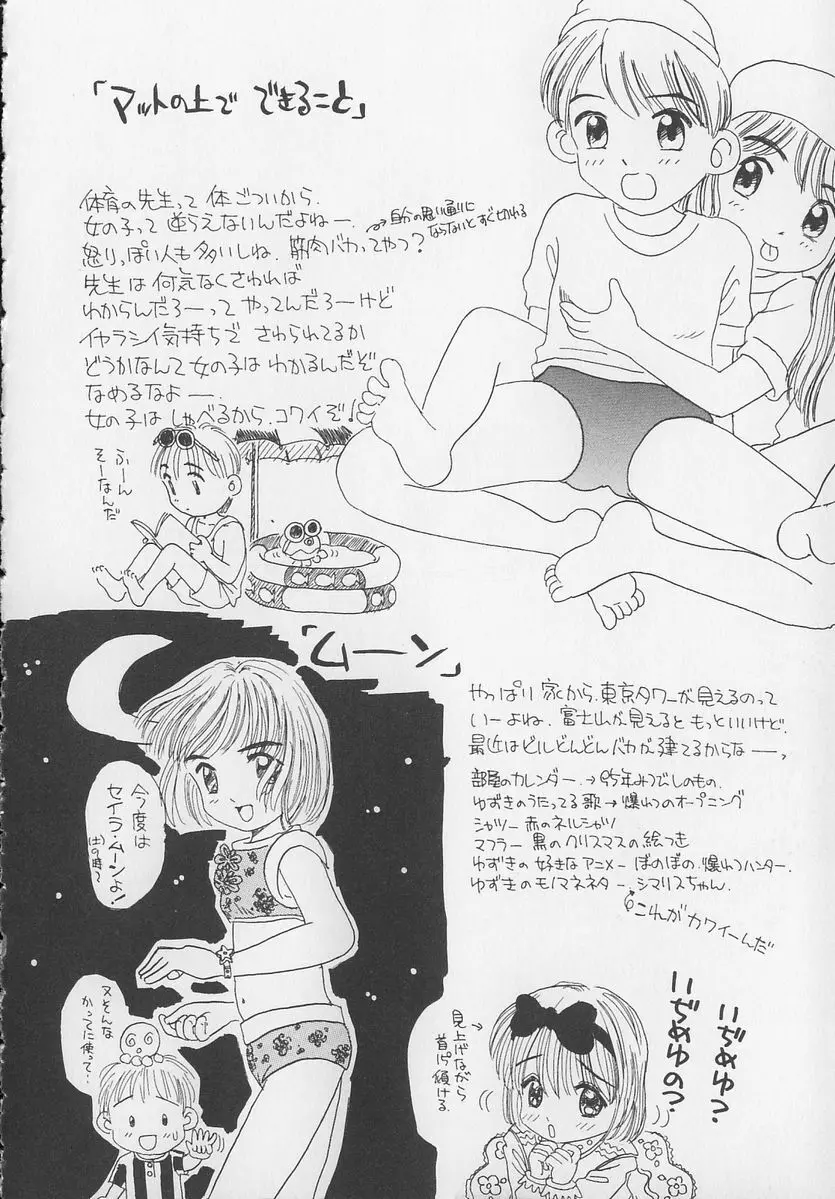 「マットの上で できること」
体育の先生って 体ごついから、
女の子って 逆らえないんだよねー、
→自分の思い通りに
ならないとすぐ切れる
怒りっぽい人も多いしね、筋肉バカってやつ?
先生は 何気なくさわれば
わからんだろーって やってんだろーけど
イヤラシイ気持ちで さわられてるか
どうかなんて女の子は わかるんだぞ
なめるなよー、
女の子は しゃべるから、コワイぞ!
ふーん
そーなんだ
「ムーン」
やっぱり 家から、東京タワーが見えるのって
いーよね、富士山が見えると もっといいけど、
最近はビルどんどんバカが、建てるからなー、
部屋のカレンダー、→95年みつでしのもの、
ゆずきのうたってる歌→爆れつのオープニング
シャツー 赤のネルシャツ
マフラー 黒のクリスマスの絵つき
ゆずきの 好きなアニメー ぼのぼの、爆れつハンター、
ゆずきのモノマネネター、シマリスちゃん、
これがカワイーんだ
今度は
セイラ・ムーンよ!
又そんな
かってに使って…
見上げながら
首かたげ傾ける
いぢめゆ?
いぢめゆの?